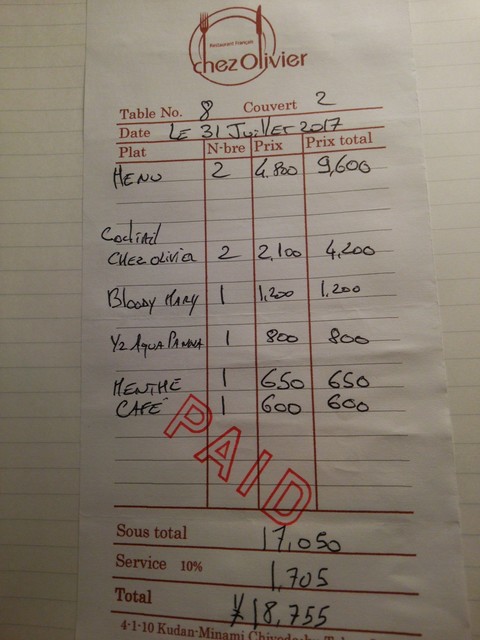 Restaurant Français
chez Olivier
Table No. 8 Couvert 2
Date LE 31 Juillet 2017
Plat N-bre Prix Prix total
MENU 2 4,800 9,600
Coctail
CHEZ Olivier 2 2,100 4,200
Bloody Mary 1 1,200 1,200
1/2 AQUA PANNA 1 800 800
MENTHE 1 650 650
CAFÉ 1 600 600
PAID
Sous total 17,050
Service 10% 1,705
Total ¥18,755
4-1-10 Kudan-Minami